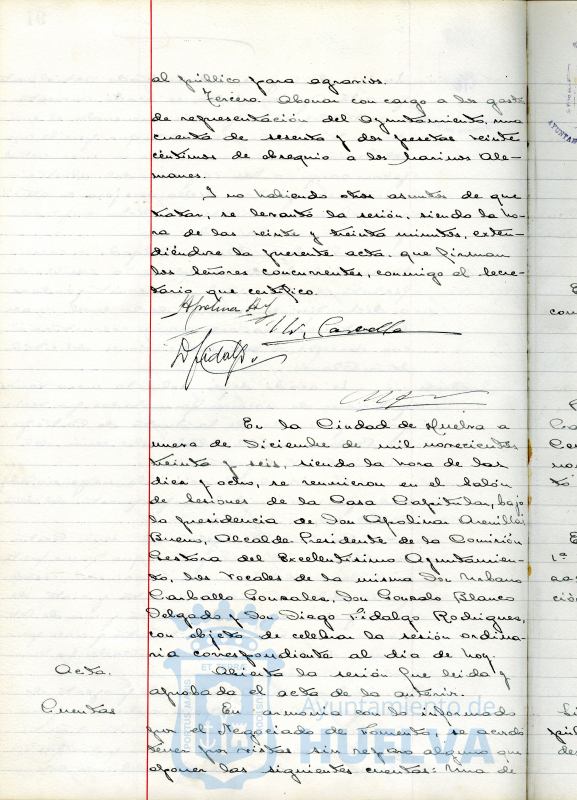 al público para agravios.
Tercero. Abonar con cargo a los gastos
de representación del Ayuntamiento, una
cuenta de sesenta y dos pesetas veinte
céntimos de obsequio a los marinos Ale-
manes.
Y no habiendo otros asuntos de que
tratar, se levantó la sesión, siendo la ho-
ra de las veinte y treinta minutos, exten-
diéndose la presente acta, que firman
los señores concurrentes, conmigo el Secre-
tario que certifico.
Apolinar
W. Carballo
D. Fidalgo
En la Ciudad de Huelva a
nueve de Diciembre de mil novecientos
treinta y seis, siendo la hora de las
diez y ocho, se reunieron en el Salón
de Sesiones de la Casa Capitular, bajo
la presidencia de Don Apolinar Arenillas
Bueno, Alcalde Presidente de la Comisión
Gestora del Excelentísimo Ayuntamien-
to, los Vocales de la misma Don Urbano
Carballo Gonzalez, Don Gonzalo Blanco
Delgado y Don Diego Fidalgo Rodriguez,
con objeto de celebrar la sesión ordina-
ria correspondiente al día de hoy.
Acta. Abierta la sesión fue leida y
aprobada el acta de la anterior.
Cuentas En armonia con lo informado
por el Negociado de Fomento, se acordó
tener por vistas sin reparo alguno que
oponer las siguientes cuentas: Una de
Ayuntamiento de
HUELVA